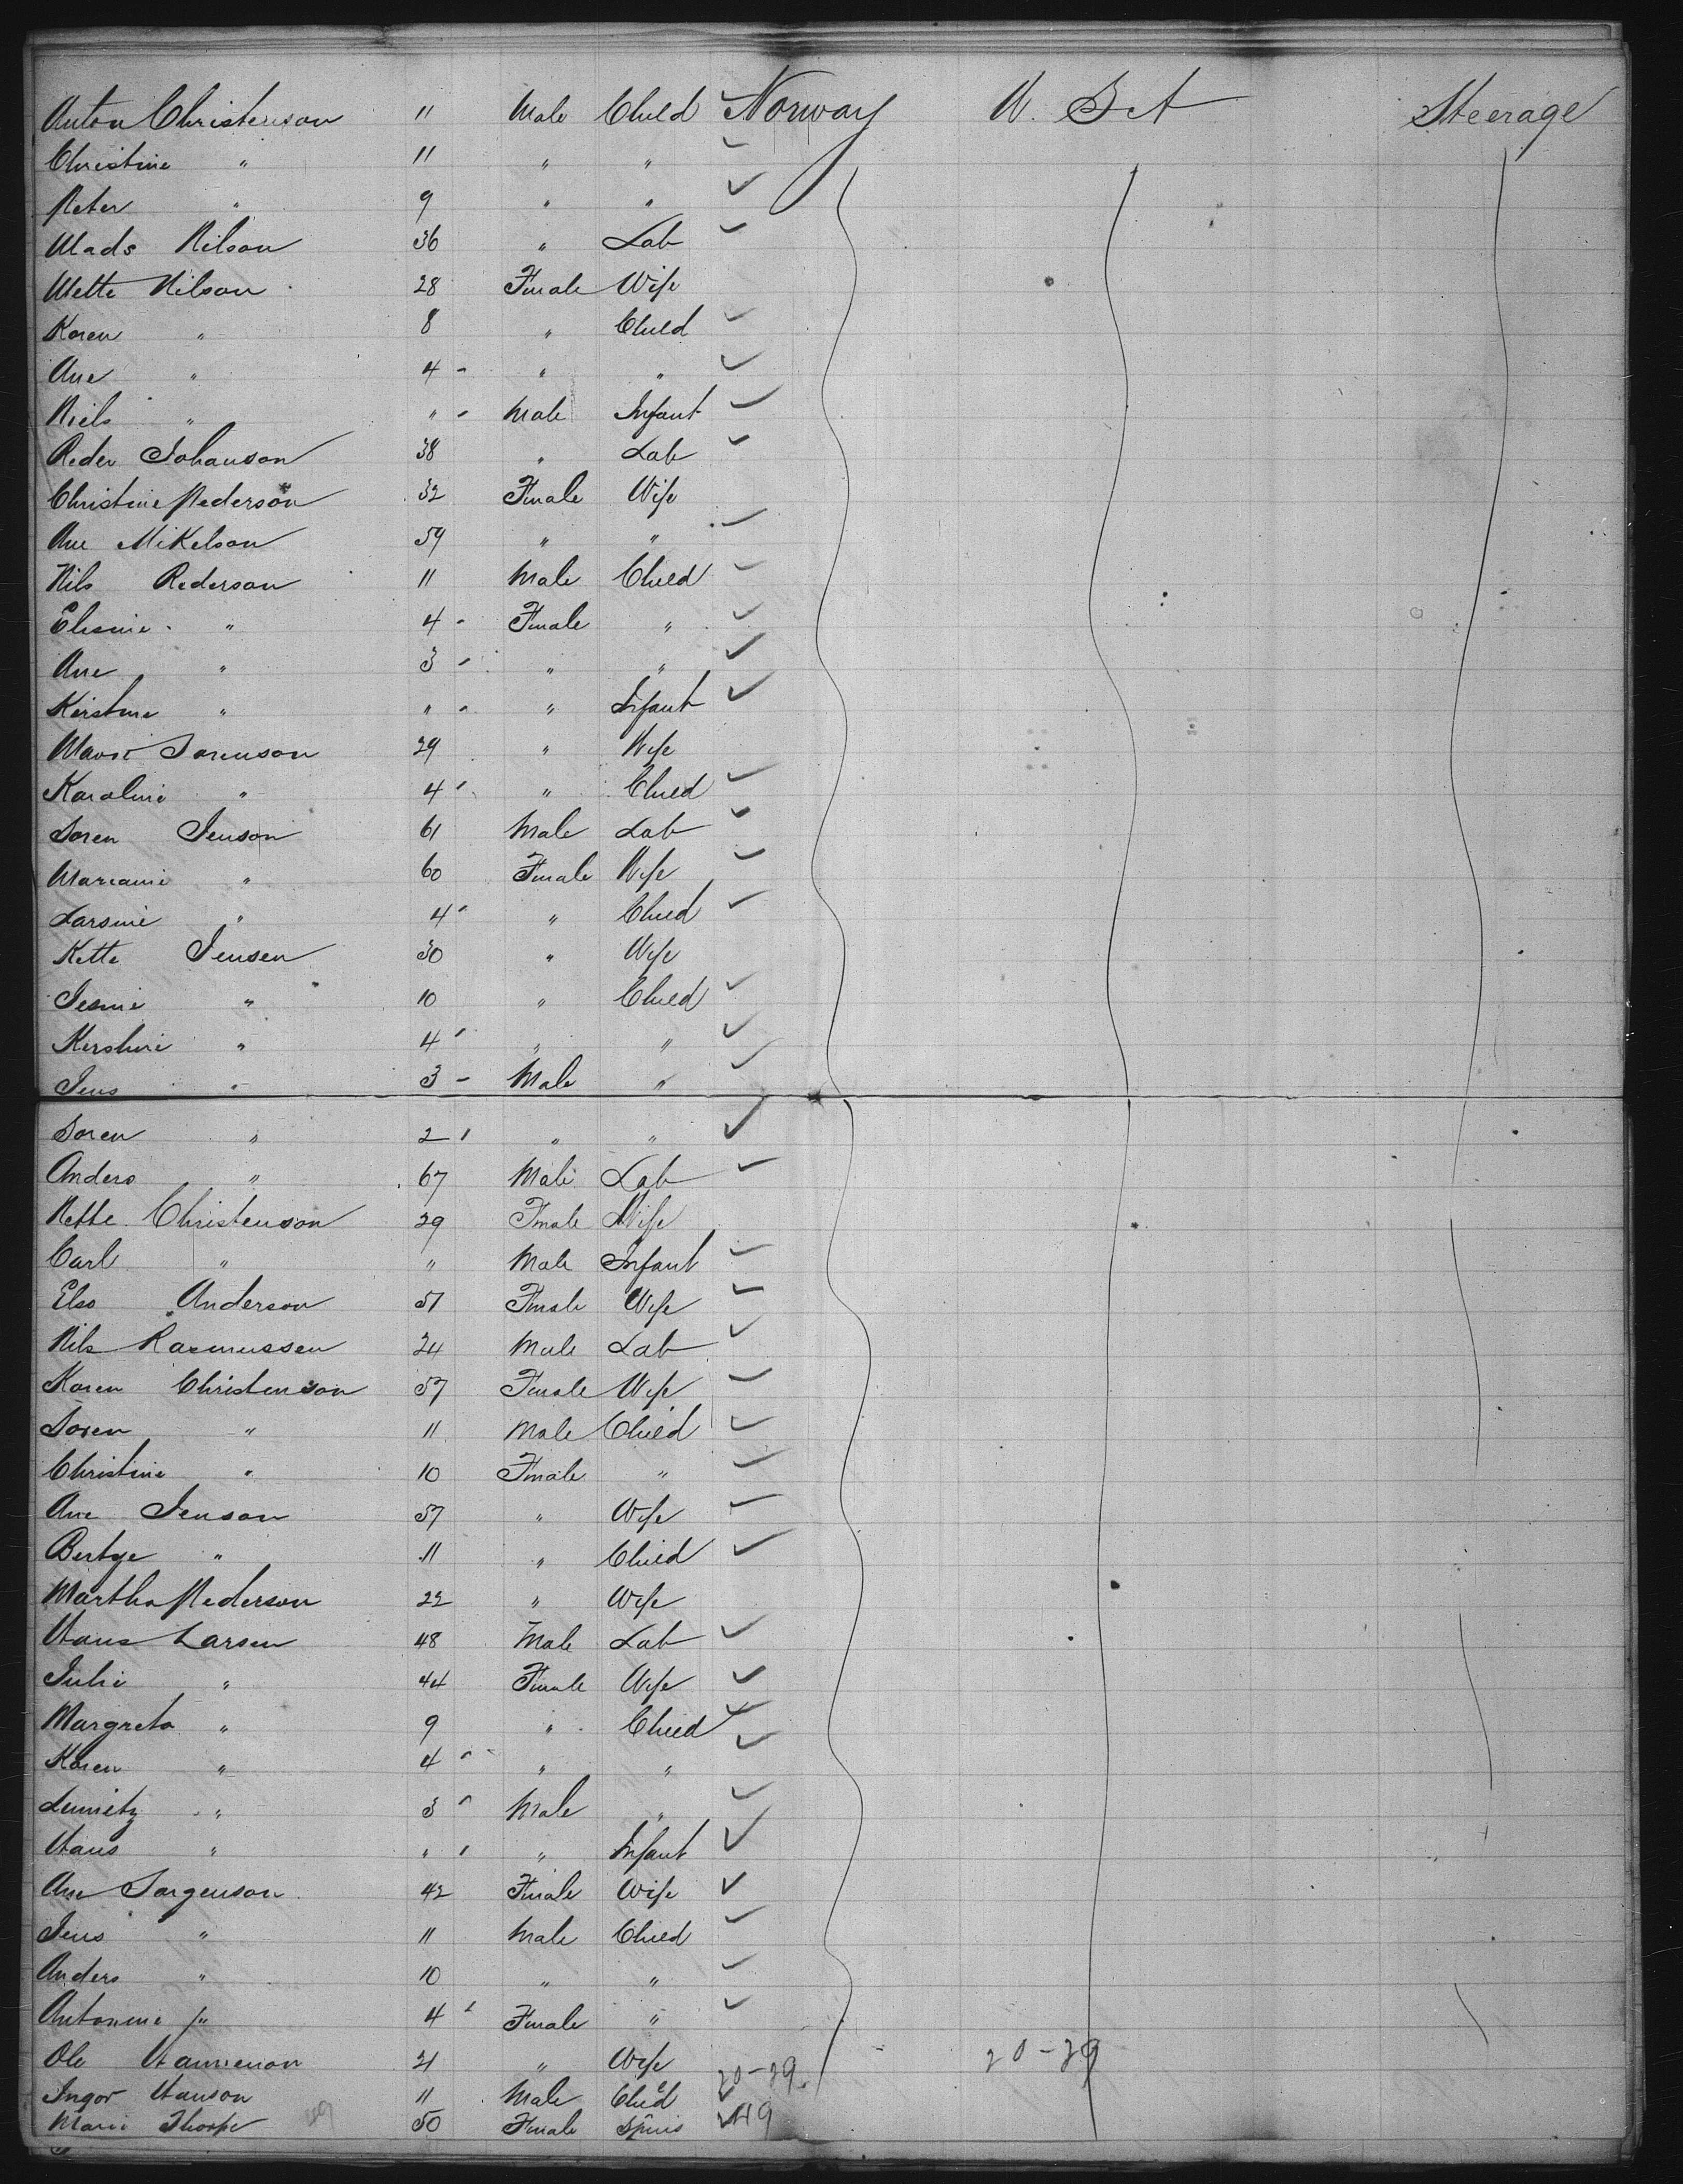 Anton Christenson 11 Male Child Norway U. St Steerage
Christine " 11 " "
Peter " 9 " "
Mads Nilson 36 " Lab
Mette Nilson 28 Female Wife
Karen " 8 " Child
Ane " 4 " "
Niels " " Male Infant
Peder Johanson 38 " Lab
Christine Pederson 32 Female Wife
Ane Mikelson 59 " "
Nils Pederson 11 Male Child
Elesine " 4 Female "
Ane " 3 " "
Kirstine " " " Infant
Sorenson 29 " Wife
Karoline " 4 " Child
Soren Jenson 61 Male Lab
Mariane " 60 Female Wife
Larsine " 4 " Child
Kette Jensen 30 " Wife
Jesine " 10 " Child
Kirstine " 4 " "
Jens " 3 Male "
Soren " 2 " "
Anders " 67 Male Lab
Mette Christenson 29 Female Wife
Carl " " Male Infant
Else Anderson 51 Female Wife
Nils Rasmussen 24 Male Lab
Karen Christenson 57 Female Wife
Soren " 11 Male Child
Christine " 10 Female "
Ane Jenson 57 " Wife
Bertge " 11 " Child
Martha Pederson 22 " Wife
Hans Larsen 48 Male Lab
Julie " 44 Female Wife
Margreta " 9 " Child
Karen " 4 " "
" 3 Male "
Hans " " " Infant
Ane Jorgenson 42 Female Wife
Jens " 11 Male Child
Anders " 10 " "
Antonine " 4 Female "
Ole 21 " Wife 20-29 20-29
Inger Hanson 11 Male Child
Marie Thorpe 50 Female Spins 49